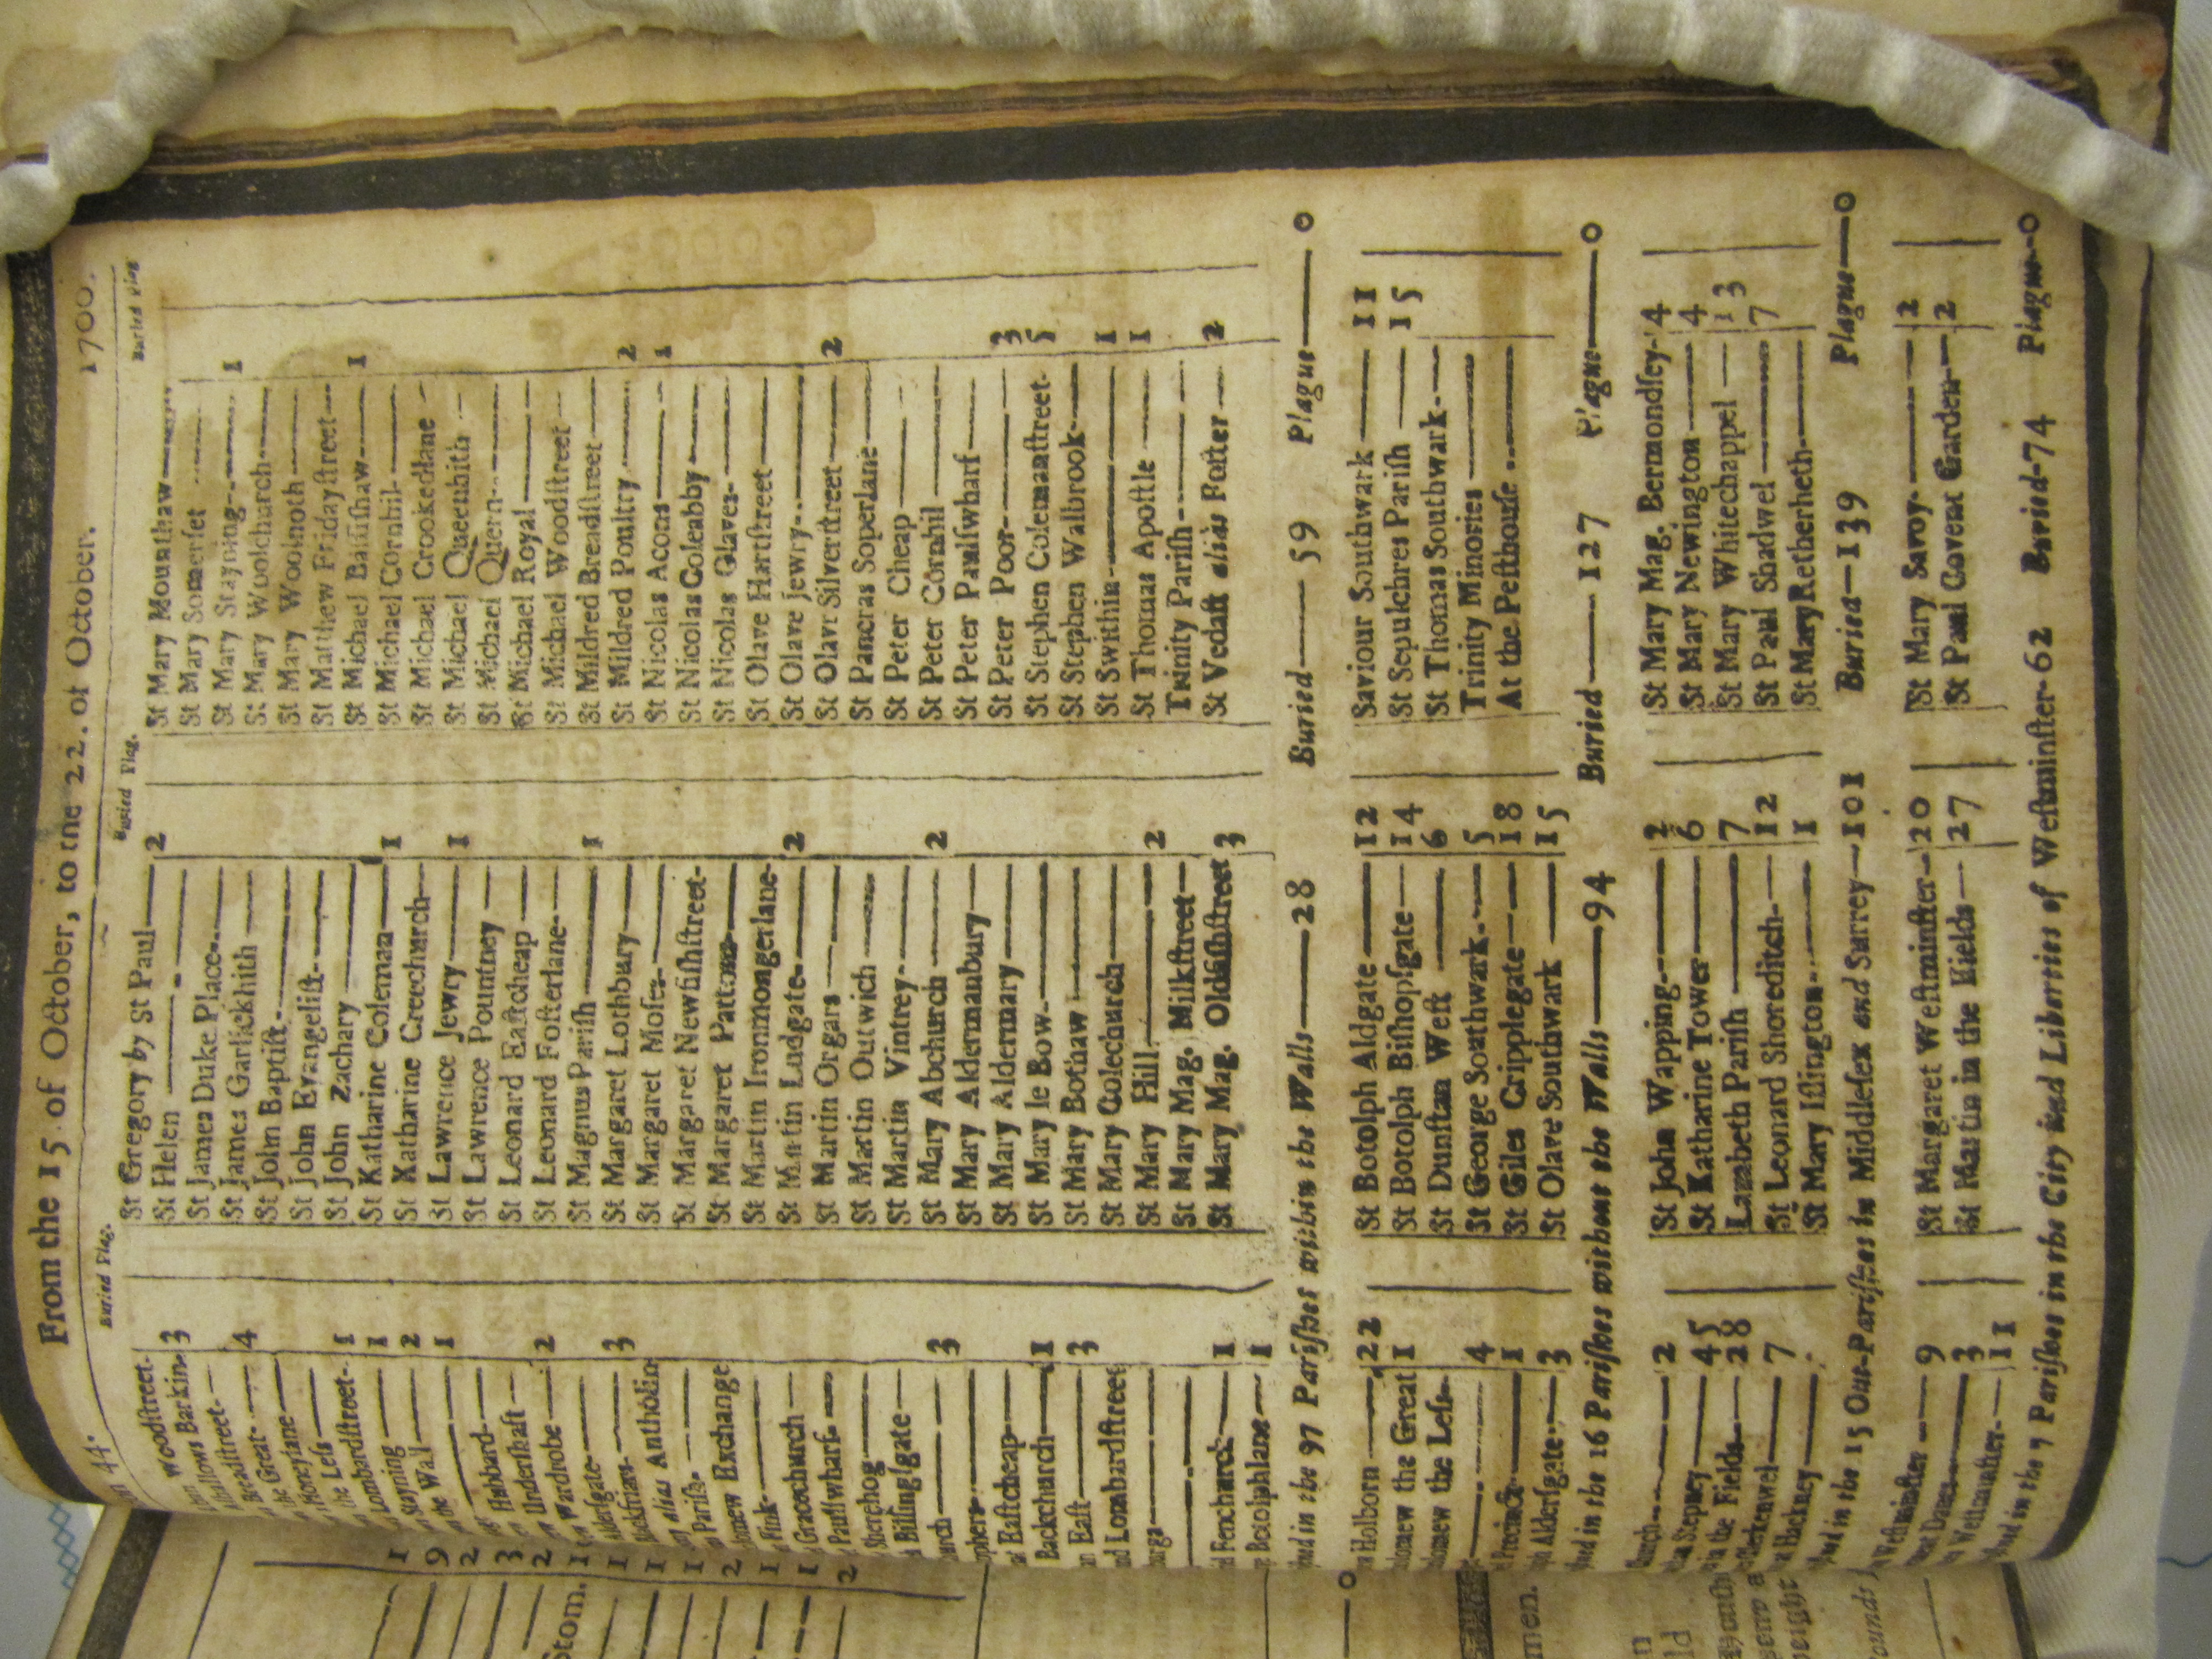 44. From the 15. of October, to the 22. of October. 1700.
Buried Plag.
Woodſtreet-
Allhallows Barkin- 3
Breadſtreet-
the Great- 4
Honeylane
the Leſs
Lombardſtreet- 1
Stayning 1
the Wall 2
1
Hubbard-
Underſhaft
Wardrobe 2
Alderſgate
Blackfriars- 3
alias Antholin
Pariſh-
Exchange
Fink-
Gracechurch
Paulſwharf-
Sherehog
Billingſgate
3
Eaſtcheap
Backchurch 1
Eaſt 3
Lombardſtreet
Fenchurch 1
Botolphlane 1
Buried Plag.
St Gregory by St Paul 2
St Helen
St James Duke Place
St James Garlickhith
St John Baptiſt
St John Evangeliſt
St John Zachary
St Katharine Coleman 1
St Katharine Creechurch
St Lawrence Jewry 1
St Lawrence Pountney
St Leonard Eaſtcheap
St Leonard Foſterlane
St Magnus Pariſh 1
St Margaret Lothbury
St Margaret Moſes
St Margaret Newfiſhſtreet-
St Margaret Pattons
St Martin Ironmongerlane-
St Martin Ludgate 2
St Martin Orgars
St Martin Outwich
St Martin Vintrey
St Mary Abchurch 2
St Mary Aldermanbury
St Mary Aldermary
St Mary le Bow
St Mary Bothaw
St Mary Colechurch
St Mary Hill 2
St Mary Mag. Milkſtreet
St Mary Mag. Oldfiſhſtreet 3
Buried Plag
St Mary Mounthaw
St Mary Somerſet
St Mary Stayning 1
St Mary Woolchurch
St Mary Woolnoth
St Matthew Fridayſtreet
St Michael Baſſiſhaw 1
St Michael Cornhil
St Michael Crookedlane
St Michael Queenhith
St Michael Quern
St Michael Royal
St Michael Woodſtreet
St Mildred Breadſtreet
St Mildred Poultry 2
St Nicolas Acons 1
St Nicolas Coleabby
St Nicolas Olaves
St Olave Hartſtreet
St Olave Jewry
St Olavr Silverſtreet 2
St Pancras Soperlane
St Peter Cheap
St Peter Cornhil
St Peter Paulſwharf
St Peter Poor 3
St Stephen Colemanſtreet 5
St Stephen Walbrook
St Swithin 1
St Thomas Apoſtle 1
Trinity Pariſh
St Vedaſt alias Foſter 2
in the 97 Pariſhes within the Walls—28 Buried—59 Plague—0
Holborn 22
the Great 1
the Leſs
4
Precinct 1
Alderſgate 3
St Botolph Aldgate 12
St Botolph Biſhopſgate 14
St Dunſtan Weſt 6
St George Southwark 5
St Giles Cripplegate 18
St Olave Southwark 15
Saviour Southwark 11
St Sepulchres Pariſh 15
St Thomas Southwark
Trinity Minories
At the Peſthouſe
in the 16 Pariſhes without the Walls—94 Buried—127 Plague—0
2
Stepney 45
in the Fields 28
7
Hackney
St John Wapping 2
St Katharine Tower 6
Lambeth Pariſh 7
St Leonard Shoreditch 12
St Mary Iſlington 1
St Mary Mag. Bermondſey- 4
St Mary Newington 4
St Mary Whitechappel 13
St Paul Shadwel 7
St Mary Retherheth
in the 15 Out-Pariſhes in Middleſex and Surrey—101 Buried—139 Plague—0
Weſtminſter 9
Danes 3
Weſtminſter 11
St Margaret Weſtminſter 20
St Martin in the Fields 27
St Mary Savoy 2
St Paul Covent Garden 2
in the 7 Pariſhes in the City and Liberties of Weſtminſter-62 Buried-74 Plague-0
1
9
2
3
2
Stom. 1
1
1
1
2
1
1
2
0
men.